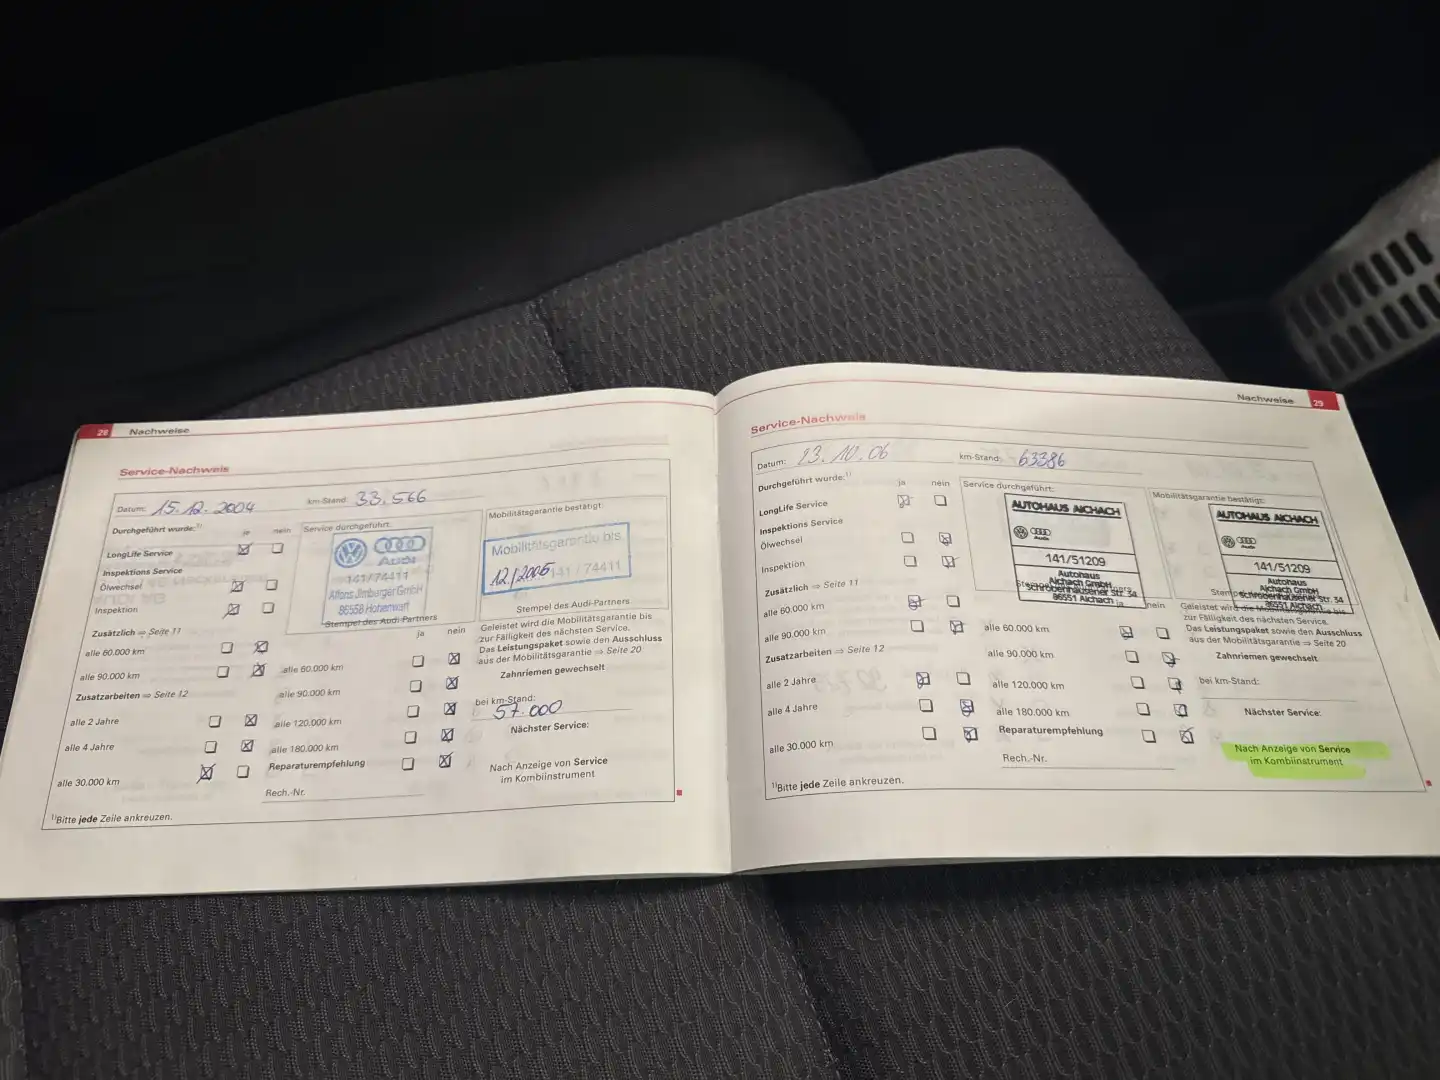 28 Nachweise
Service-Nachweis
Datum: 15.12.2004 km-Stand: 33.566
Durchgeführt wurde:¹⁾ ja nein
Service durchgeführt:
Mobilitätsgarantie bestätigt:
LongLife Service
Inspektions Service
Ölwechsel
Inspektion
Audi
141/74411
Alfons Jimbarger GmbH
86558 Hohenwart
Stempel des Audi-Partners
Mobilitätsgarantie bis
12/2006 141 / 74411
Stempel des Audi-Partners
Zusätzlich ⇒ Seite 11
alle 60.000 km
alle 90.000 km
Zusatzarbeiten ⇒ Seite 12
alle 2 Jahre
alle 4 Jahre
alle 30.000 km
ja nein
alle 60.000 km
alle 90.000 km
alle 120.000 km
alle 180.000 km
Reparaturempfehlung
Rech.-Nr.
Geleistet wird die Mobilitätsgarantie bis
zur Fälligkeit des nächsten Service.
Das Leistungspaket sowie den Ausschluss
aus der Mobilitätsgarantie ⇒ Seite 20
Zahnriemen gewechselt
bei km-Stand:
57.000
Nächster Service:
Nach Anzeige von Service
im Kombiinstrument
¹⁾Bitte jede Zeile ankreuzen.
Nachweise 29
Service-Nachweis
Datum: 23.10.06 km-Stand: 63386
Durchgeführt wurde:¹⁾ ja nein
Service durchgeführt:
Mobilitätsgarantie bestätigt:
LongLife Service
Inspektions Service
Ölwechsel
Inspektion
AUTOHAUS AICHACH
Audi
141/51209
Autohaus
Aichach GmbH
Schrobenhausener Str. 34
86551 Aichach
AUTOHAUS AICHACH
Audi
141/51209
Autohaus
Aichach GmbH
Schrobenhausener Str. 34
86551 Aichach
Zusätzlich ⇒ Seite 11
alle 60.000 km
alle 90.000 km
Zusatzarbeiten ⇒ Seite 12
alle 2 Jahre
alle 4 Jahre
alle 30.000 km
ja nein
alle 60.000 km
alle 90.000 km
alle 120.000 km
alle 180.000 km
Reparaturempfehlung
Rech.-Nr.
Geleistet wird die Mobilitätsgarantie bis
zur Fälligkeit des nächsten Service.
Das Leistungspaket sowie den Ausschluss
aus der Mobilitätsgarantie ⇒ Seite 20
Zahnriemen gewechselt
bei km-Stand:
Nächster Service:
Nach Anzeige von Service
im Kombiinstrument
¹⁾Bitte jede Zeile ankreuzen.